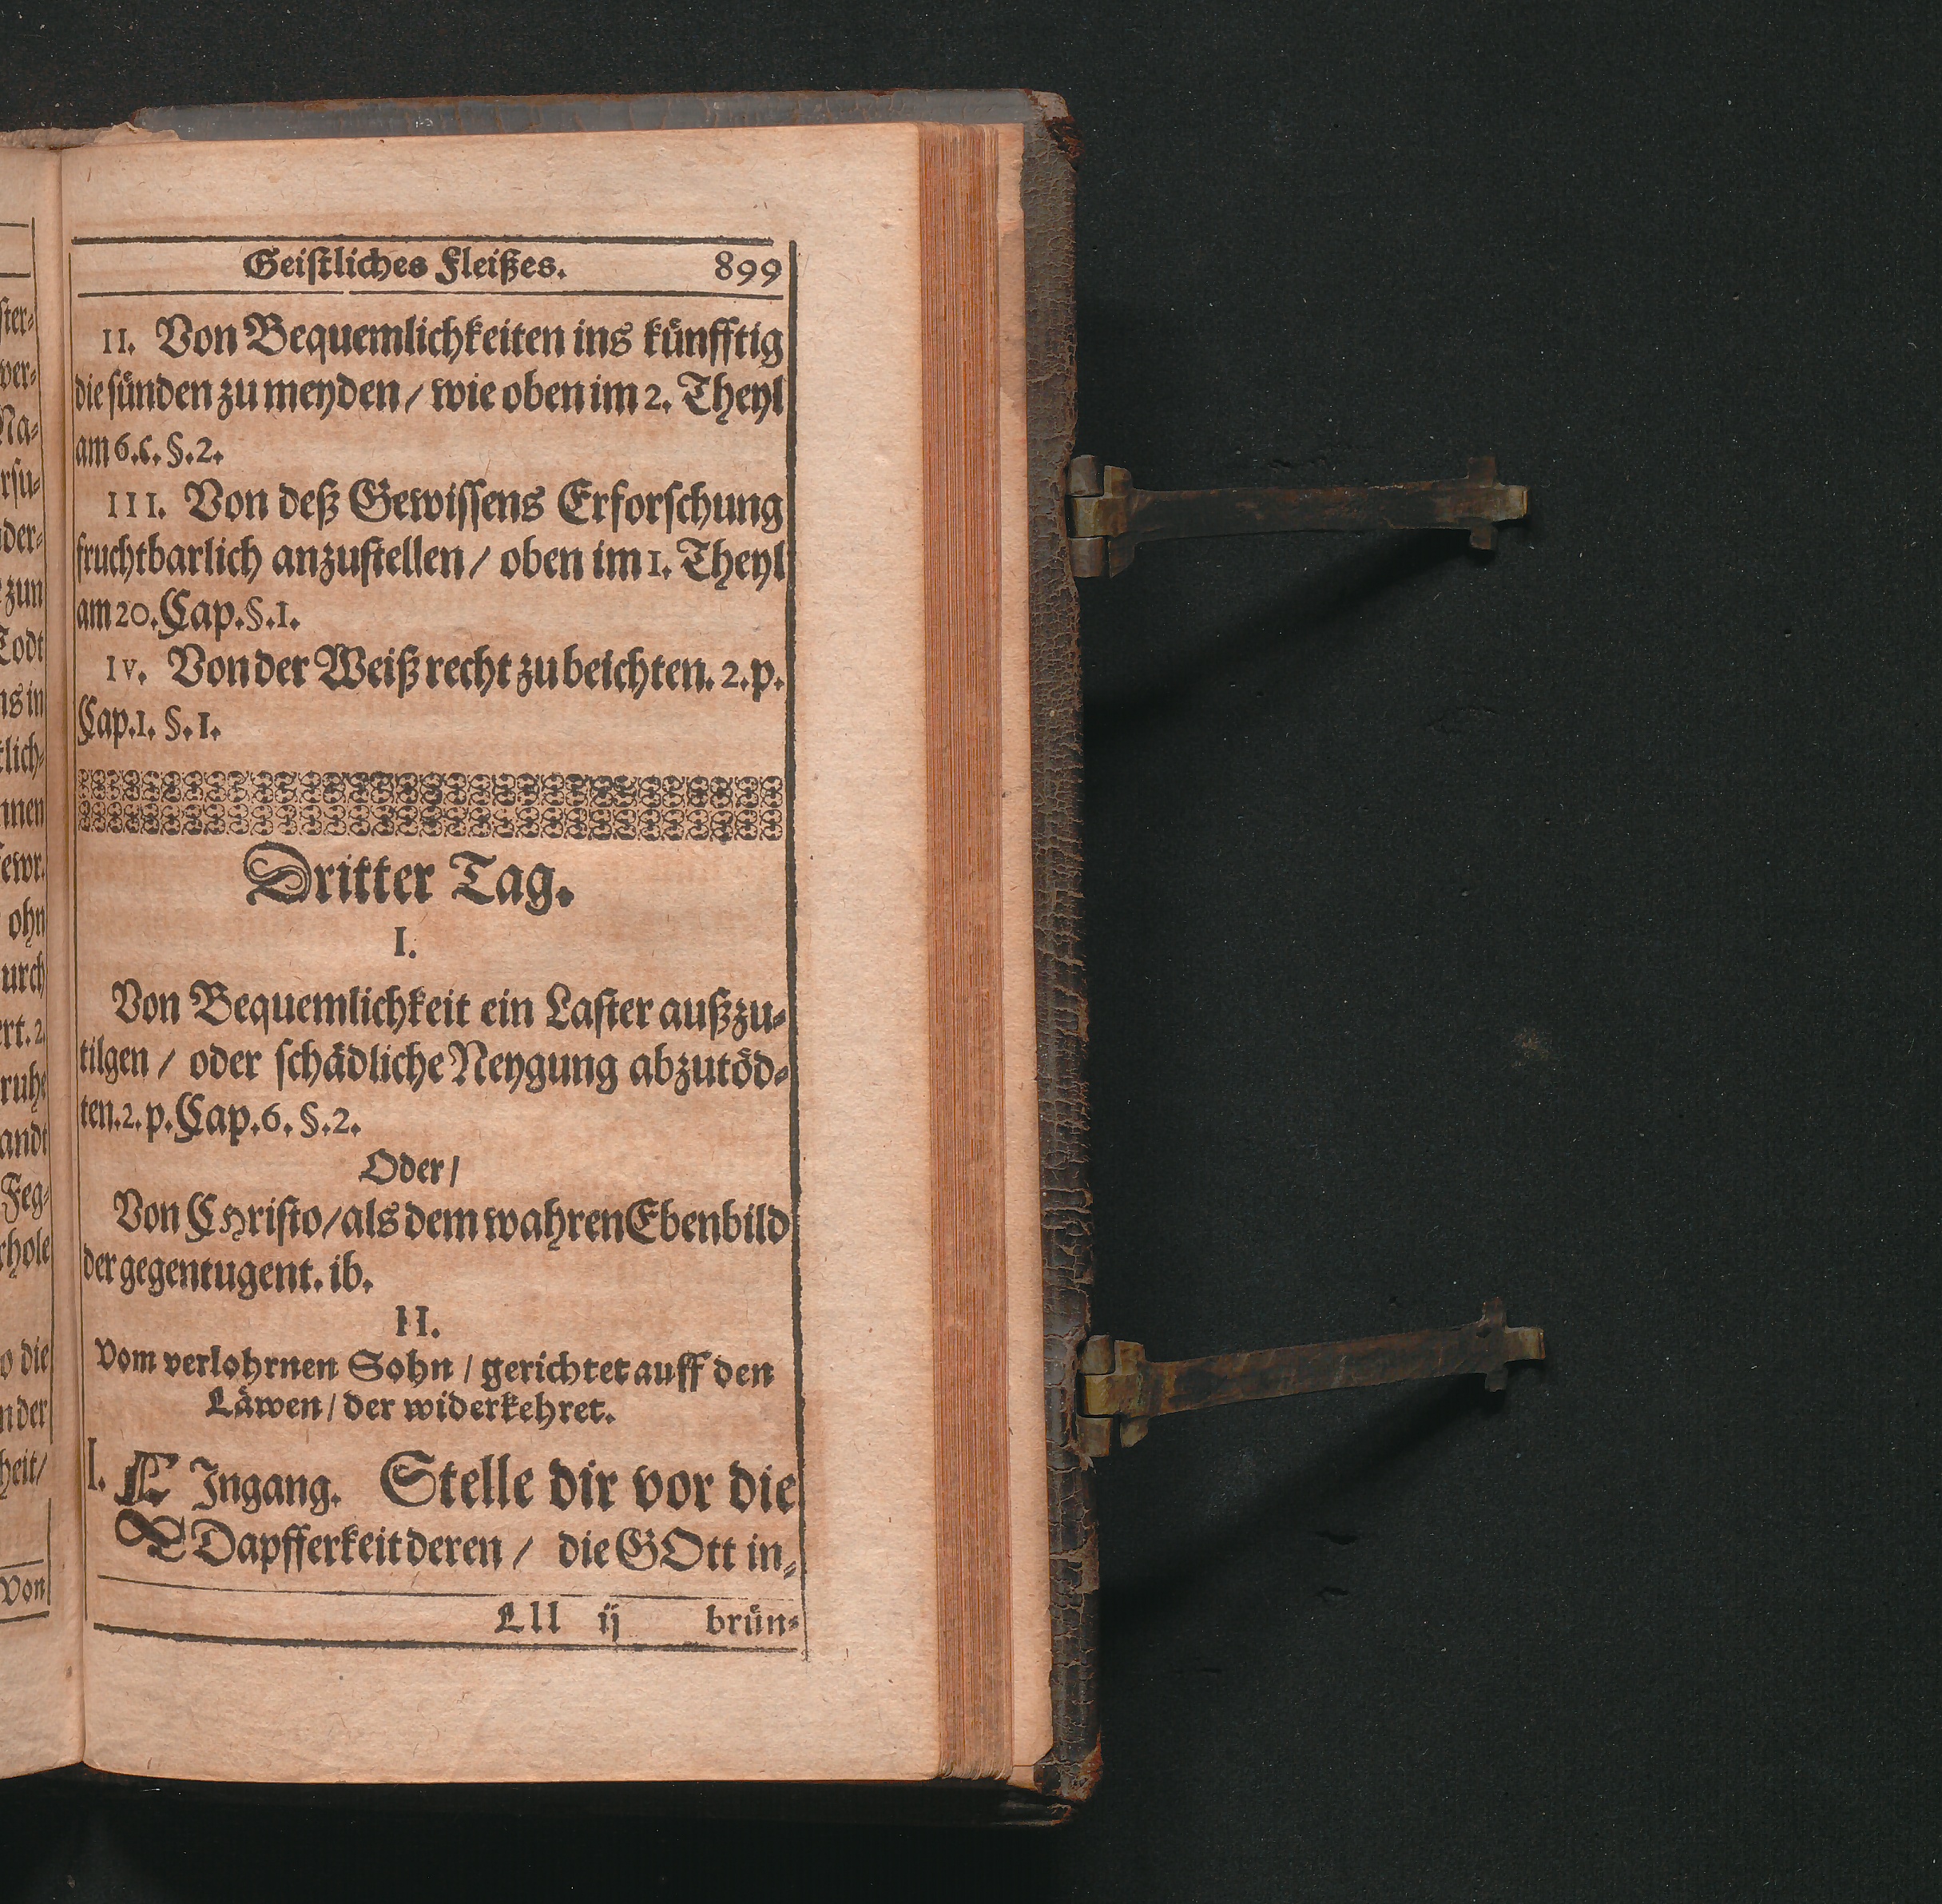 Geistliches Fleißes. 899
II. Von Bequemlichkeiten ins künfftig
die sünden zu meyden / wie oben im 2. Theyl
am 6. c. §. 2.
III. Von deß Gewissens Erforschung
fruchtbarlich anzustellen / oben im 1. Theyl
am 20. Cap. §. I.
IV. Von der Weiß recht zu beichten. 2. p.
Cap. I. §. I.
Dritter Tag.
I.
Von Bequemlichkeit ein Laster außzu-
tilgen / oder schädliche Neygung abzutöd-
ten. 2. p. Cap. 6. §. 2.
Oder /
Von CHristo / als dem wahren Ebenbild
der gegentugent. ib.
II.
Vom verlohrnen Sohn / gerichtet auff den
Läwen / der widerkehret.
I. EIngang. Stelle dir vor die
Dapfferkeit deren / die GOtt in-
Lll ij brün-